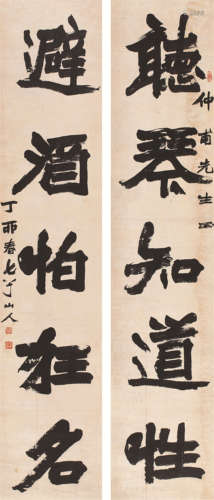 聽琴知道性
仲甫先生正
避酒怕狂名
丁卯春七十叟山人